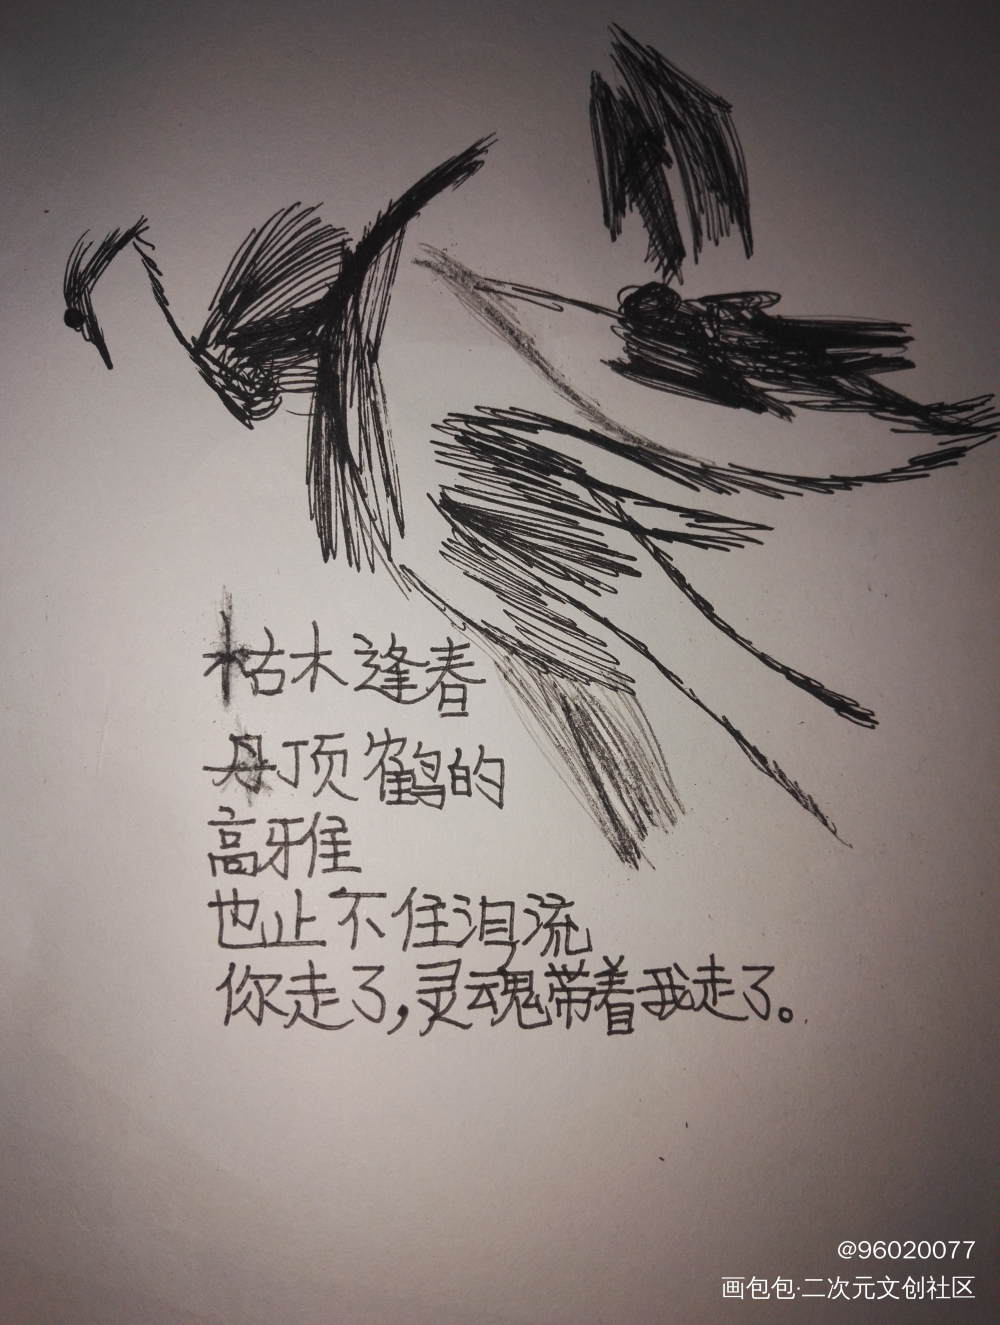 枯木逢春
丹顶鹤的
高雅
也止不住泪流
你走了,灵魂带着我走了。
@96020077
画包包·二次元文创社区